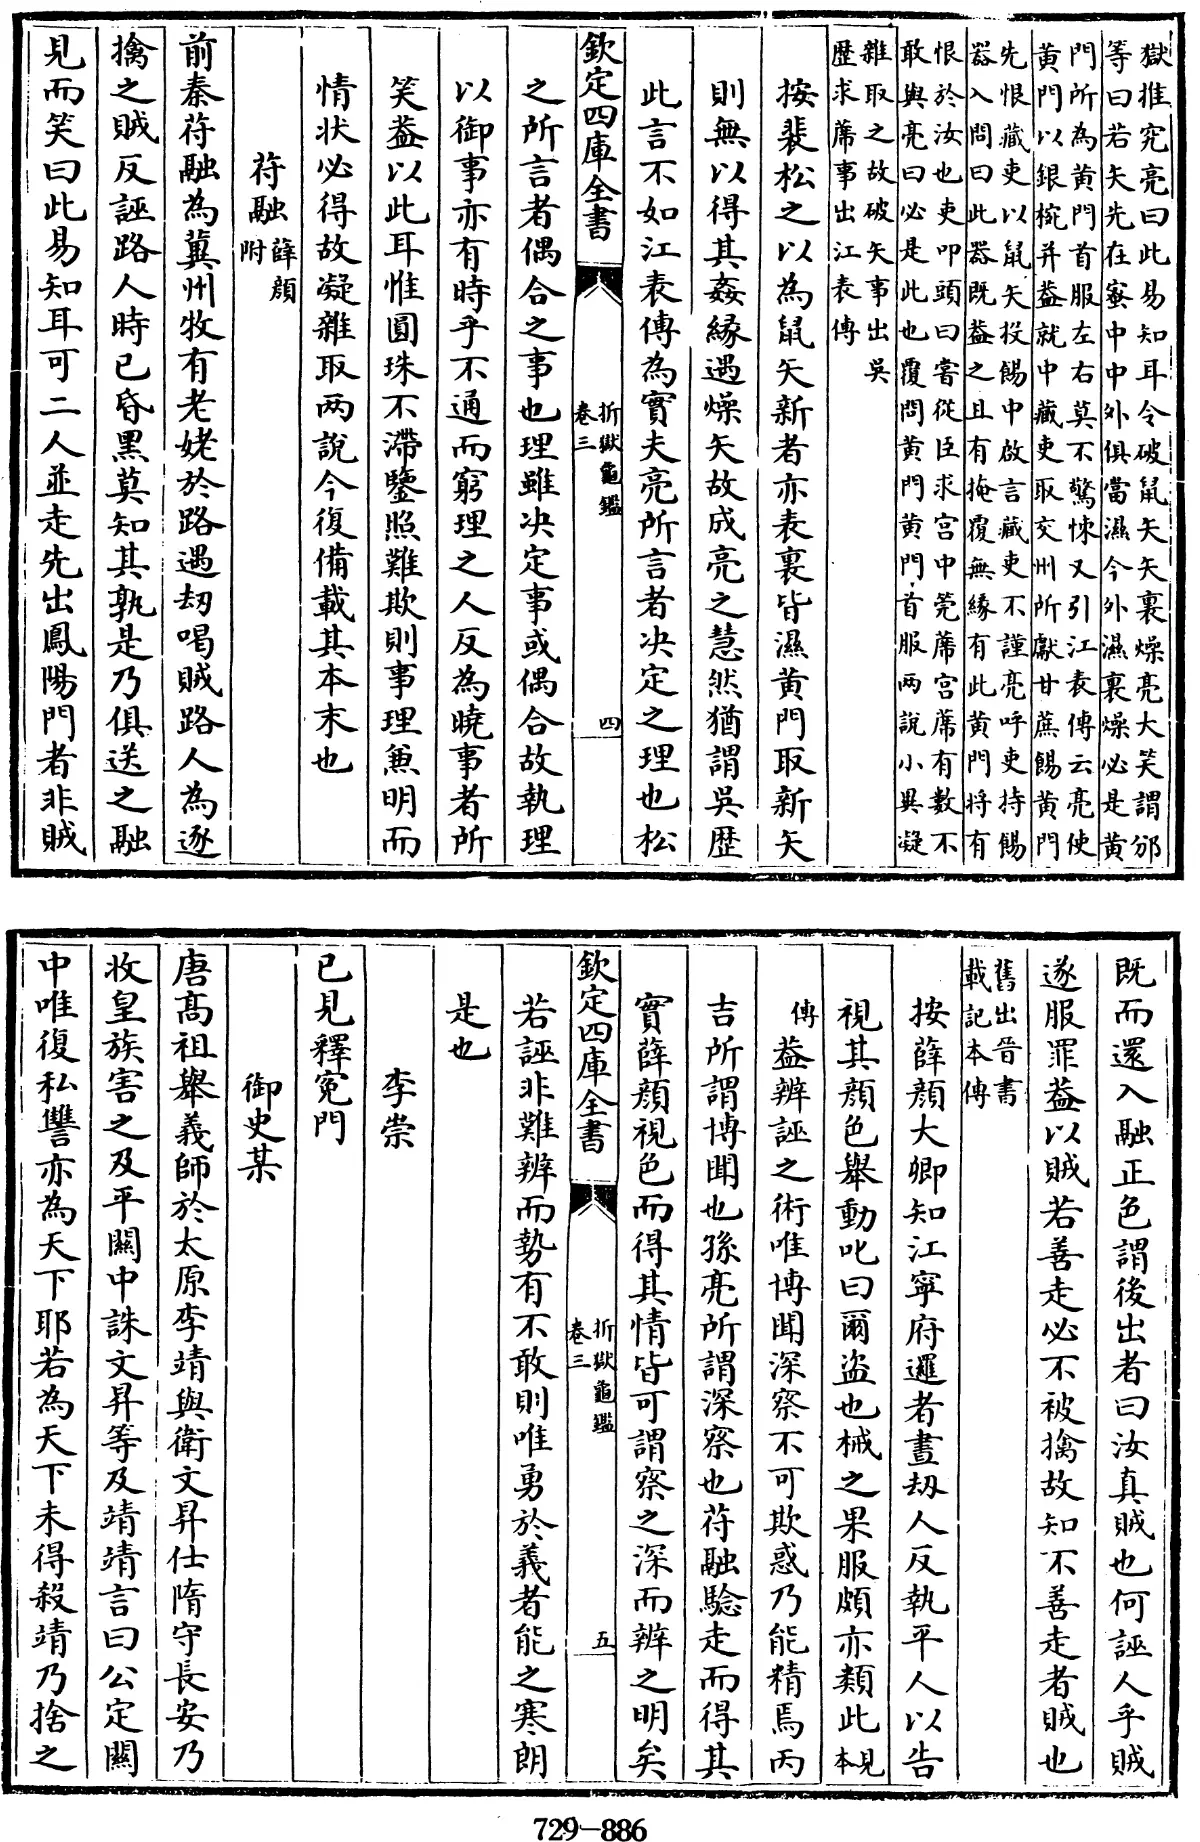 獄推究亮曰此易知耳令破鼠矢矢裏燥亮大笑謂邠
等曰若矢先在蜜中中外俱當濕今外濕裏燥必是黃
門所為黃門首服左右莫不驚悚又引江表傳云亮使
黃門以銀椀并葢就中藏吏取交州所獻甘蔗餳黃門
先恨藏吏以鼠矢投餳中啟言藏吏不謹亮呼吏持餳
器入問曰此器既葢之且有掩覆無緣有此黃門將有
恨於汝也吏叩頭曰嘗從臣求宫中莞蓆宫蓆有數不
敢與亮曰必是此也覆問黃門黃門首服两說小異凝
雜取之故破矢事出吳
歴求蓆事出江表傳
按裴松之以為鼠矢新者亦表裏皆濕黄門取新矢
則無以得其姦緣遇燥矢故成亮之慧然猶謂吳歴
此言不如江表傳為實夫亮所言者决定之理也松
欽定四庫全書
折獄龜鑑
卷三
四
之所言者偶合之事也理雖决定事或偶合故執理
以御事亦有時乎不通而窮理之人反為曉事者所
笑葢以此耳惟圓珠不滯鑒照難欺則事理兼明而
情状必得故凝雜取两說今復備載其本末也
苻融薛顔附
前秦苻融為冀州牧有老姥於路遇刼喝賊路人為逐
擒之賊反誣路人時已昏黑莫知其孰是乃俱送之融
見而笑曰此易知耳可二人並走先出鳳陽門者非賊
既而還入融正色謂後出者曰汝真賊也何誣人乎賊
遂服罪葢以賊若善走必不被擒故知不善走者賊也
舊出晉書
載記本傳
按薛顔大卿知江寧府邏者晝刼人反執平人以告
視其顔色舉動叱曰爾盗也械之果服頗亦類此見本
傳葢辨誣之術唯博聞深察不可欺惑乃能精焉丙
吉所謂博聞也孫亮所謂深察也苻融驗走而得其
實薛顔視色而得其情皆可謂察之深而辨之明矣
欽定四庫全書
折獄龜鑑
卷三
五
若誣非難辨而勢有不敢則唯勇於義者能之寒朗
是也
李崇
已見釋寃門
御史某
唐髙祖舉義師於太原李靖與衛文昇仕隋守長安乃
收皇族害之及平關中誅文昇等及靖靖言曰公定關
中唯復私讐亦為天下耶若為天下未得殺靖乃捨之
729-886